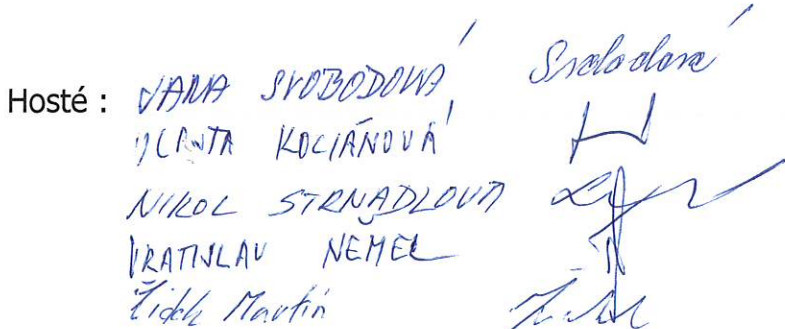 Hosté : JANA SVOBODOVÁ Svobodová
KOCIÁNOVÁ
NIKOL STRNADLOVÁ
VRATISLAV NEMEC
Žídek Martin